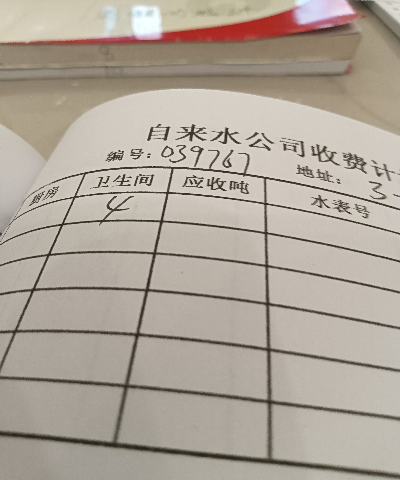 自来水公司收费计
编号：039767 地址：3-
厨房 卫生间 应收吨 水表号
4